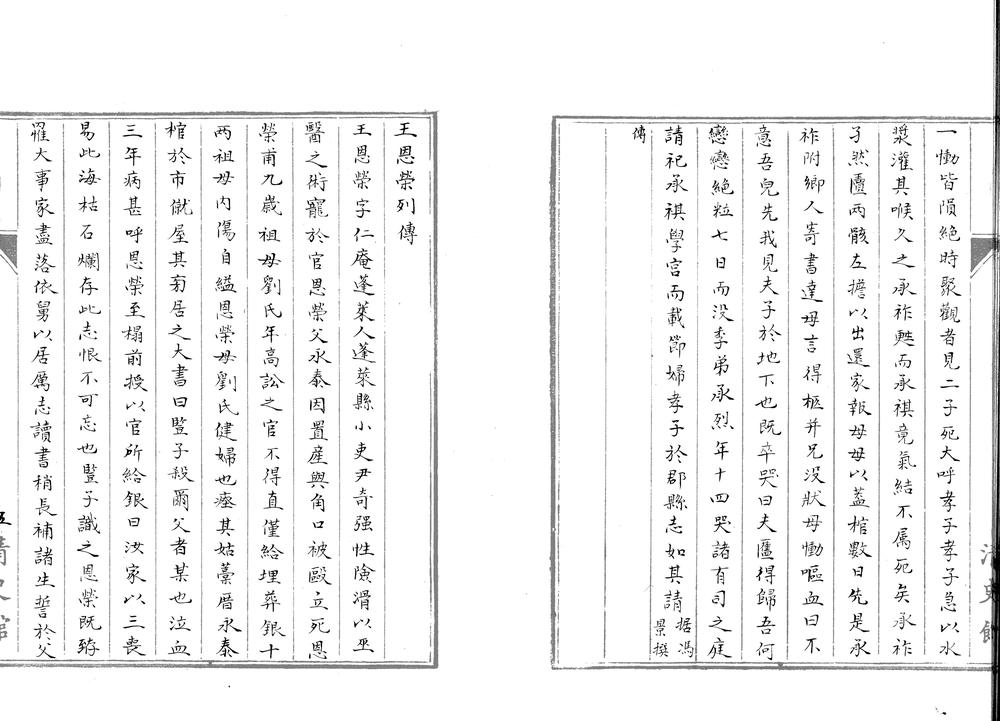 一慟皆隕絕時聚觀者見二子死大呼孝子孝子急以水
漿灌其喉久之承祚甦而承祺竟氣結不屬死矣承祚
孑然匶兩骸左擔以出還家報母母以蓋棺數日先是承
祚附鄉人寄書達母言得柩并兄沒狀母慟嘔血曰不
意吾兒先我見夫子於地下也既卒哭曰夫匶得歸吾何
戀戀絕粒七日而没季弟承烈年十四哭諸有司之庭
請祀承祺學宮而載節婦孝子於郡縣志如其請据馮景撰
傳
王恩榮列傳
王恩榮字仁庵蓬萊人蓬萊縣小吏尹奇强性險滑以巫
醫之術寵於官恩榮父永泰因置產與角口被毆立死恩
榮甫九歲祖母劉氏年高訟之官不得直僅給埋葬銀十
兩祖母內傷自縊恩榮母劉氏健婦也瘞其姑藁厝永泰
棺於市僦屋其菊居之大書曰豎子殺爾父者某也泣血
三年病甚呼恩榮至榻前授以官所給銀曰汝家以三喪
易此海枯石爛存此志恨不可忘也豎子識之恩榮既
罹大事家盡落依舅以居厲志讀書稍長補諸生誓於父
五
清史館
清史館